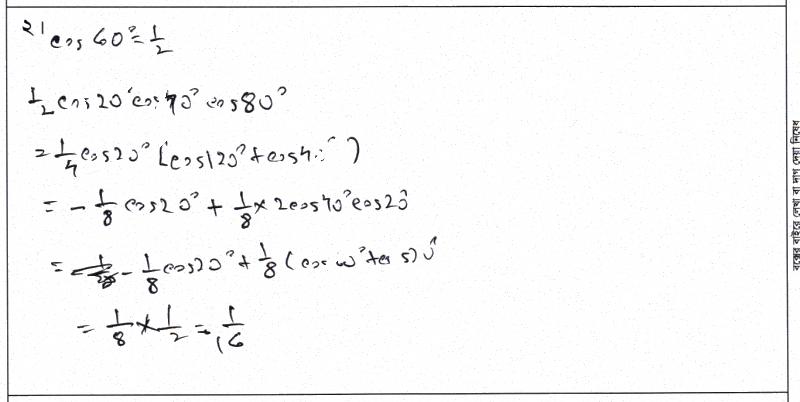 ২১ cos 60° = 1/2
1/2 cos20° cos40° cos80°
= 1/4 cos20° [cos120° + cos40°]
= - 1/8 cos20° + 1/8 × 2cos40° cos20°
= - 1/8 cos20° + 1/8 (cos 60° + cos 20°
= 1/8 × 1/2 = 1/16
বক্সের বাইরে লেখা বা দাগ দেয়া নিষেধ